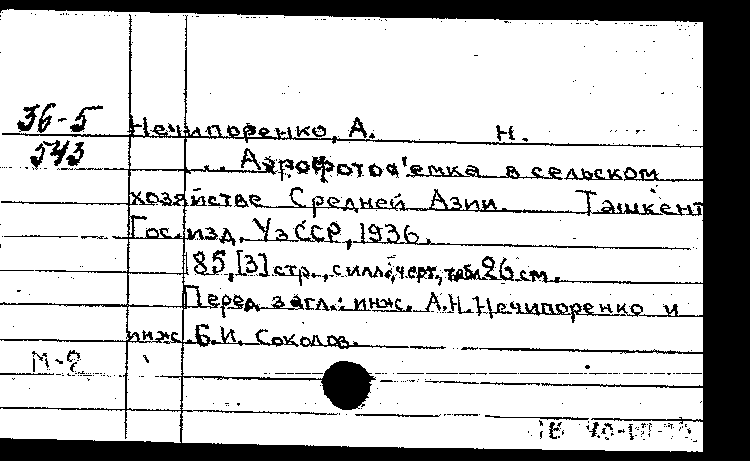 36-5
543
Нечипоренко, А. Н.
... Аэрофотос'емка в сельском
хозяйстве Средней Азии. Ташкент
Гос. изд. УзССР, 1936.
85, [3] стр., с илл., черт., табл. 26 см.
Перед загл.: инж. А.Н. Нечипоренко и
инж. Б.И. Соколов.